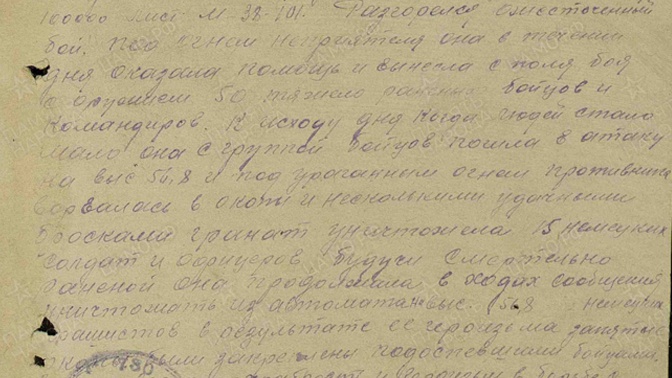 10000 лист М-38-101. Разгорелся ожесточенный
бой. Под огнем неприятеля она в течении
дня оказала помощь и вынесла с поля боя
с оружием 50 тяжело раненых бойцов и
командиров. К исходу дня когда людей стало
мало она с группой бойцов пошла в атаку
на выс 56,8 и под ураганным огнем противника
ворвалась в окопы и несколькими удачными
бросками гранат уничтожила 15 немецких
солдат и офицеров. Будучи смертельно
раненой она продолжала в ходах сообщений
уничтожать из автомата на выс. 56,8 немецких
фашистов в результате ее героизма занятые
были закреплены подоспевшими бойцами.
и в борьбе